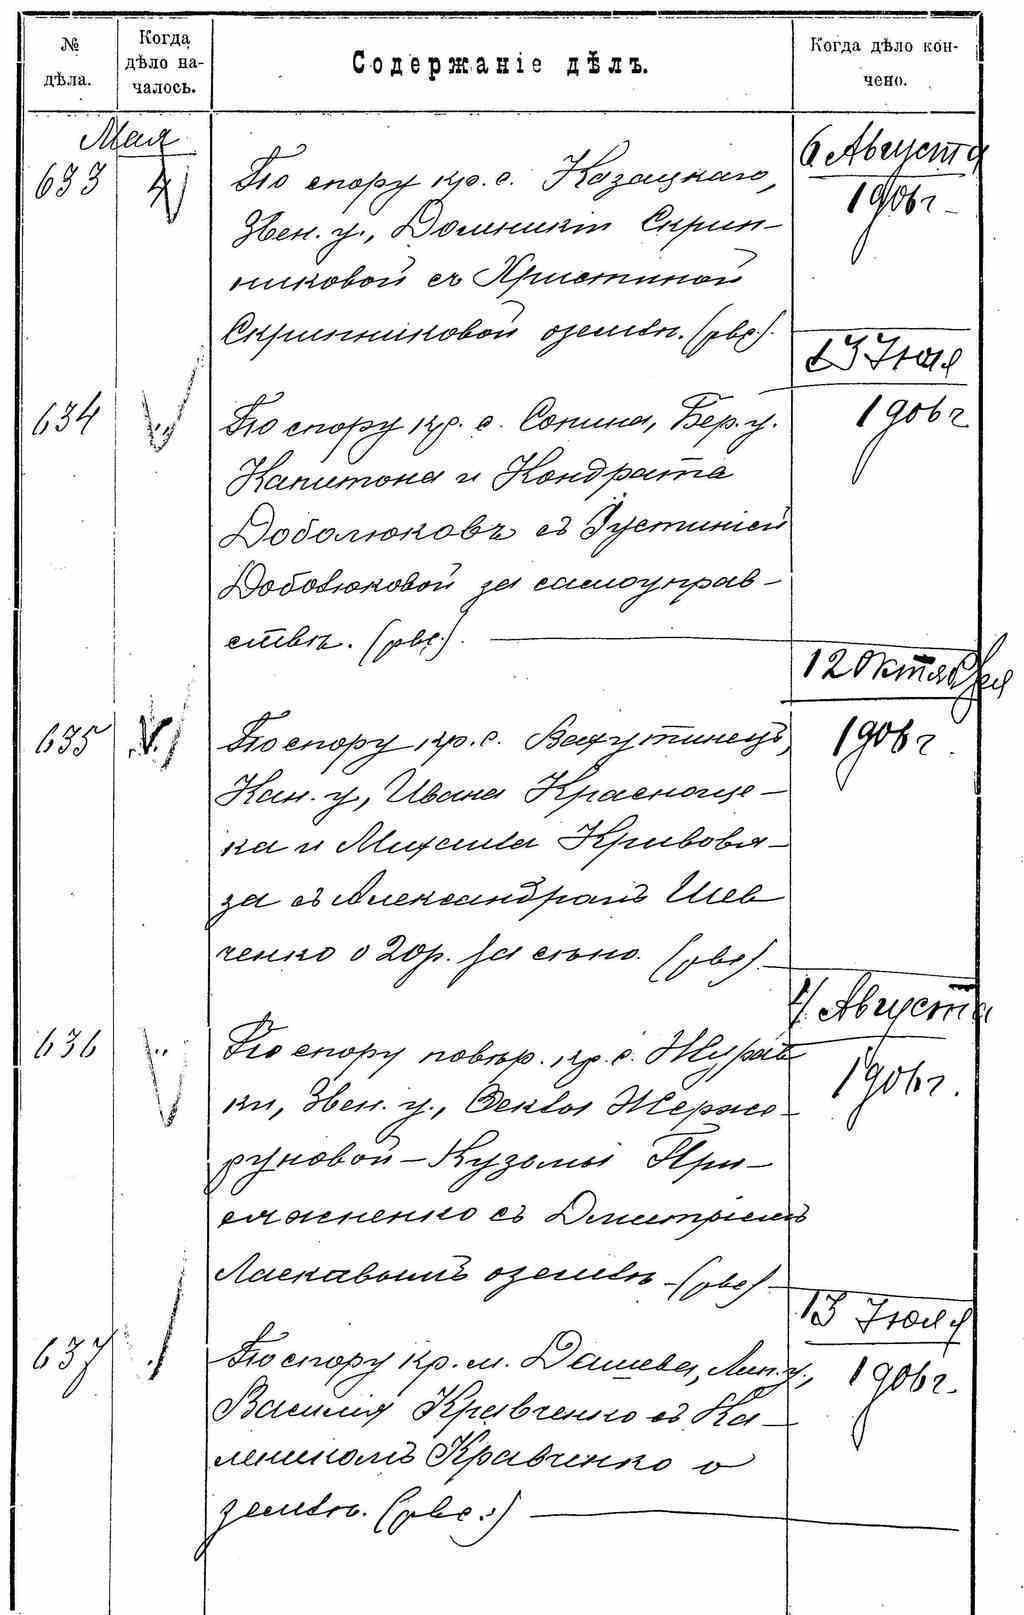 № дѣла.
Когда дѣло на-
чалось.
Содержаніе дѣлъ.
Когда дѣло кон-
чено.
Мая
633
По спору кр. с. Козацкаго,
Звен. у., Домникіи Скрип-
никовой съ Христиной
Скрипниковой о землѣ. (рвс.).
6 Августа
1906 г
634
По спору кр. с. Сопина, Бер. у.
Капитона и Кондрата
Доболюковъ съ Устиніей
Доболюковой за самоуправ-
ствѣ. (рвс.).
13 Іюля
1906 г
635
По спору кр. с. Вахутинецъ,
Кан. у., Ивана Красноще-
ка и Михаила Кривовя-
за съ Александромъ Шев
ченко о 20 р. за сѣно. (рвс).
12 Октября
1906 г.
636
По спору повѣр. кр. с. Журав
ки, Звен. у., Феклы Жержо-
руновой – Кузьмы При-
сяжненко съ Дмитріемъ
Ласкавымъ о землѣ – (рвс)
Августа
1906 г.
637
По спору кр. м. Дашева, Лип. у.,
Василія Кравченко съ Ка-
леникомъ Кравченко о
землѣ. (рвс.)
13 Іюля
1906 г.